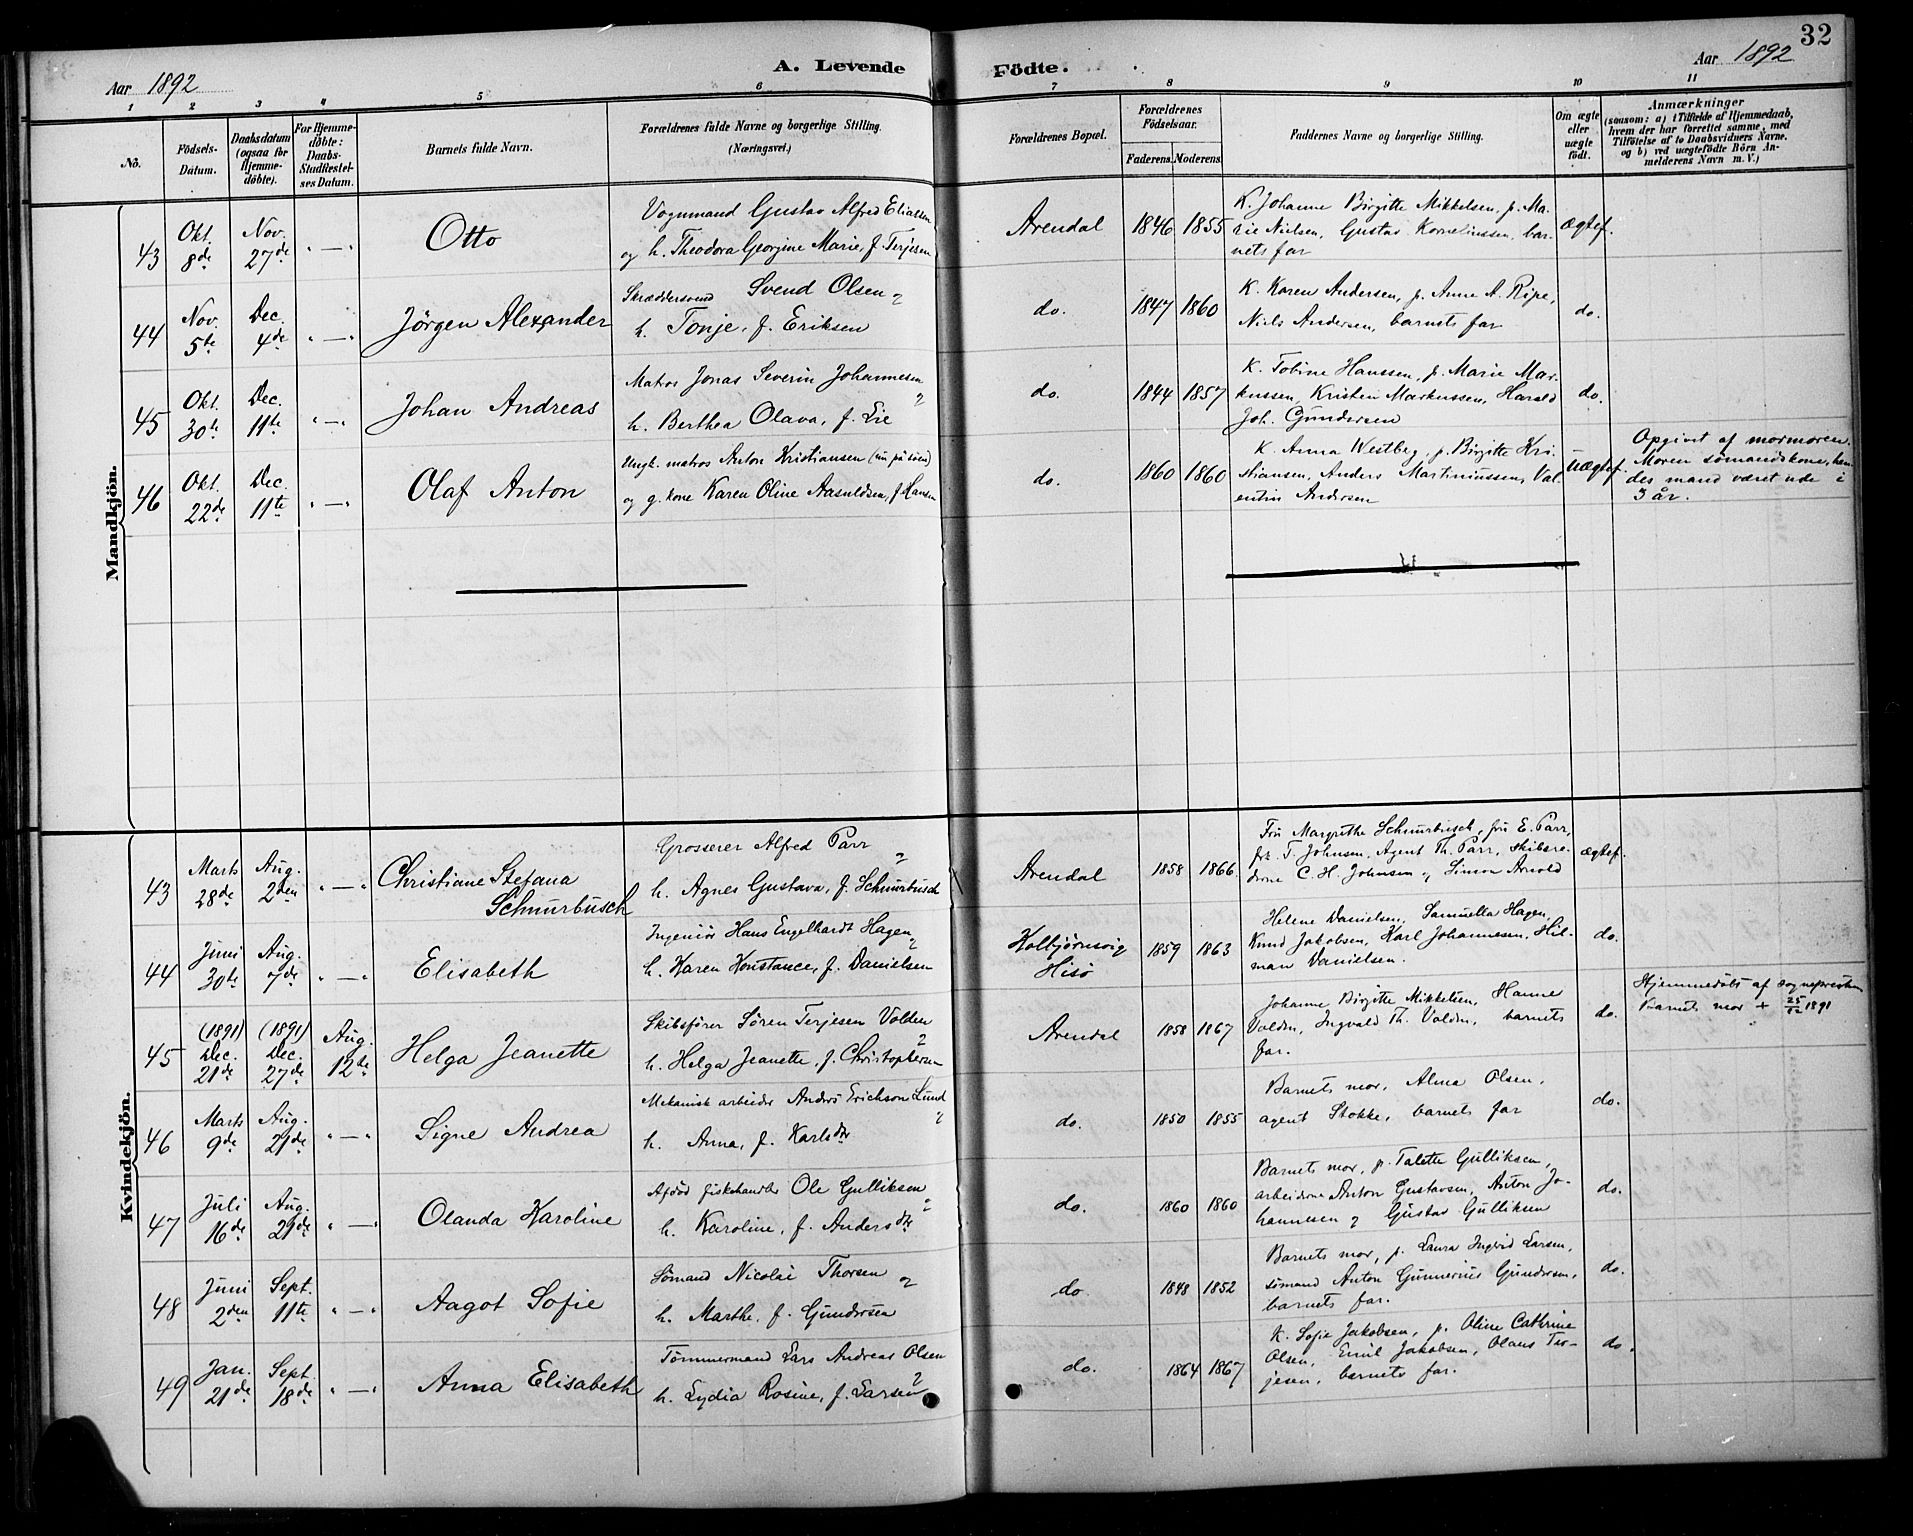 32
Aar 1892
A. Levende
Födte.
Aar 1892
1 2 3 4 5 6 7 8 9 10 11
No.
Födsels-
Datum.
Daabsdatum
(ogsaa for
Hjemme-
døbte).
For Hjemme-
döbte:
Daabs-
Stadfæstel-
ses Datum.
Barnets fulde Navn.
Forældrenes fulde Navne og borgerlige Stilling.
(Næringsvei.)
Forældrenes Bopæl.
Forældrenes
Födselsaar.
Faderens. Moderens.
Faddernes Navne og borgerlige Stilling.
Om ægte
eller
uægte
födt.
Anmærkninger
(saasom: a) i Tilfælde af Hjemmedaab,
hvem der har forrettet samme, med
Tilföielse af to Daabsvidners Navne.
og b) ved uægtefödte Börn An-
melderens Navn m. V.)
Mandkjön.
43
Okt.
8de
Nov.
27de
" — "
Otto
Vognmand Gustav Alfred Eliassen
og h. Theodora Georgine Marie, f. Terjesen
Arendal
1846 1855
K. Johanne Birgitte Mikkelsen, p. Ma-
rie Nielsen, Gustav Korneliussen, bar-
nets far
ægtef.
44
Nov.
5te
Dec.
4de
" — "
Jörgen Alexander
Skræddersvend Svend Olsen og
h. Tonje, f. Eriksen
do.
1847 1860
K. Karen Andersen, p. Anne A. Ripe,
Niels Andersen, barnets far
do.
45
Okt.
30te
Dec.
11te
" — "
Johan Andreas
Matros Jonas Severin Johannesen
og
h. Berthea Olava, f. Lie
do.
1844 1857
K. Tobine Hanssen, p. Marie Mar-
kussen, Kristen Markussen, Harald
Joh. Gundersen
do.
46
Okt.
22de
Dec.
11te
" — "
Olaf Anton
Ungk. matros Anton Kristiansen (nu på søen)
og g. kone Karen Oline Aasuldsen, f. Hansen
do.
1860 1860
K. Anna Westberg, p. Birgitte Kri-
stiansen, Anders Martiniussen, Val-
entin Andersen
uægtef.
Opgivet af mormoren.
Moren sømandskone, hen-
des mand været ude i
3 år.
Kvindekjön.
43
Marts
28de
Aug.
2den
" — "
Christiane Stefana
Schnurbusch
Grosserer Alfred Parr
og
h. Agnes Gustava, f. Schnurbusch
Arendal
1858 1866
Fru Margrethe Schnurbusch, fru E. Parr,
frk. T. Johnsen, Agent Th. Parr, skibsre-
derne C. H. Johnsen og Simon Arnold
ægtef.
44
Juni
30te
Aug.
7de
" — "
Elisabeth
Ingeniør Hans Engelhardt Hagen
og
h. Karen Konstance, f. Danielsen
Kolbjørnsvig
Hisø
1859 1863
Helene Danielsen, Samuella Hagen,
Knud Jakobsen, Karl Johannesen, Hil-
man Danielsen.
do.
45
(1891)
Dec.
21de
(1891)
Dec.
27de
Aug.
12te
Helga Jeanette
Skibsfører Sören Terjesen Volden
og
h. Helga Jeanette, f. Christophersen
Arendal
1858 1867
Johanne Birgitte Mikkelsen, Hanne
Volden, Ingvald Th. Volden, barnets
far.
do.
Hjemmedøbt af sognepresten
Barnets mor + 25/12 1891
46
Marts
9de
Aug.
21de
" — "
Signe Andrea
Mekanisk arbeider Anders Erichson Lund
og
h. Anna, f. Karlsdtr
do.
1850 1855
Barnets mor, Alma Olsen,
agent Stokke, barnets far
do.
47
Juli
16de
Aug.
21de
" — "
Olanda Karoline
Afdød fiskehandler Ole Gulliksen
og
h. Karoline, f. Andersdtr
do.
1860 1860
Barnets mor, p. Talette Gulliksen,
arbeiderne Anton Gustavsen, Anton Jo-
hannesen og Gustav Gulliksen
do.
48
Juni
2den
Sept.
11te
" — "
Aagot Sofie
Sømand Nicolai Thorsen og
h. Marthe, f. Gundersen
do
1848 1852
Barnets mor, p. Laura Ingrid Larsen,
sømand Anton Gunnerius Gundersen,
barnets far.
do.
49
Jan.
21de
Sept.
18de
" — "
Anna Elisabeth
Tømmermand Lars Andreas Olsen
og
h. Lydia Rosine, f. Larsen
do.
1864 1867
K. Sofie Jakobsen, p. Oline Cathrine
Olsen, Emil Jakobsen, Olaus Ter-
jesen, barnets far.
do.